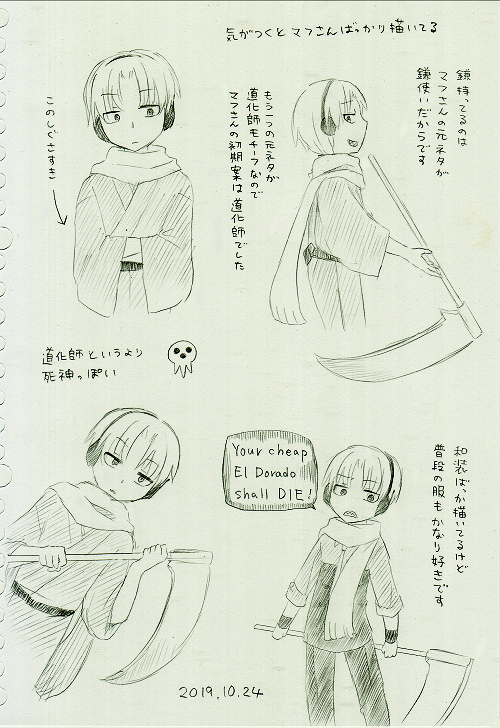 気がつくとマフさんばっかり描いてる
鎌持ってるのは
マフさんの元ネタが
鎌使いだからです
もう一つの元ネタが
道化師モチーフなので
マフさんの初期案は道化師でした
このしぐさすき
道化師というより
死神っぽい
Your cheap
El Dorado
shall DIE!
和装ばっか描いてるけど
普段の服もかなり好きです
2019.10.24